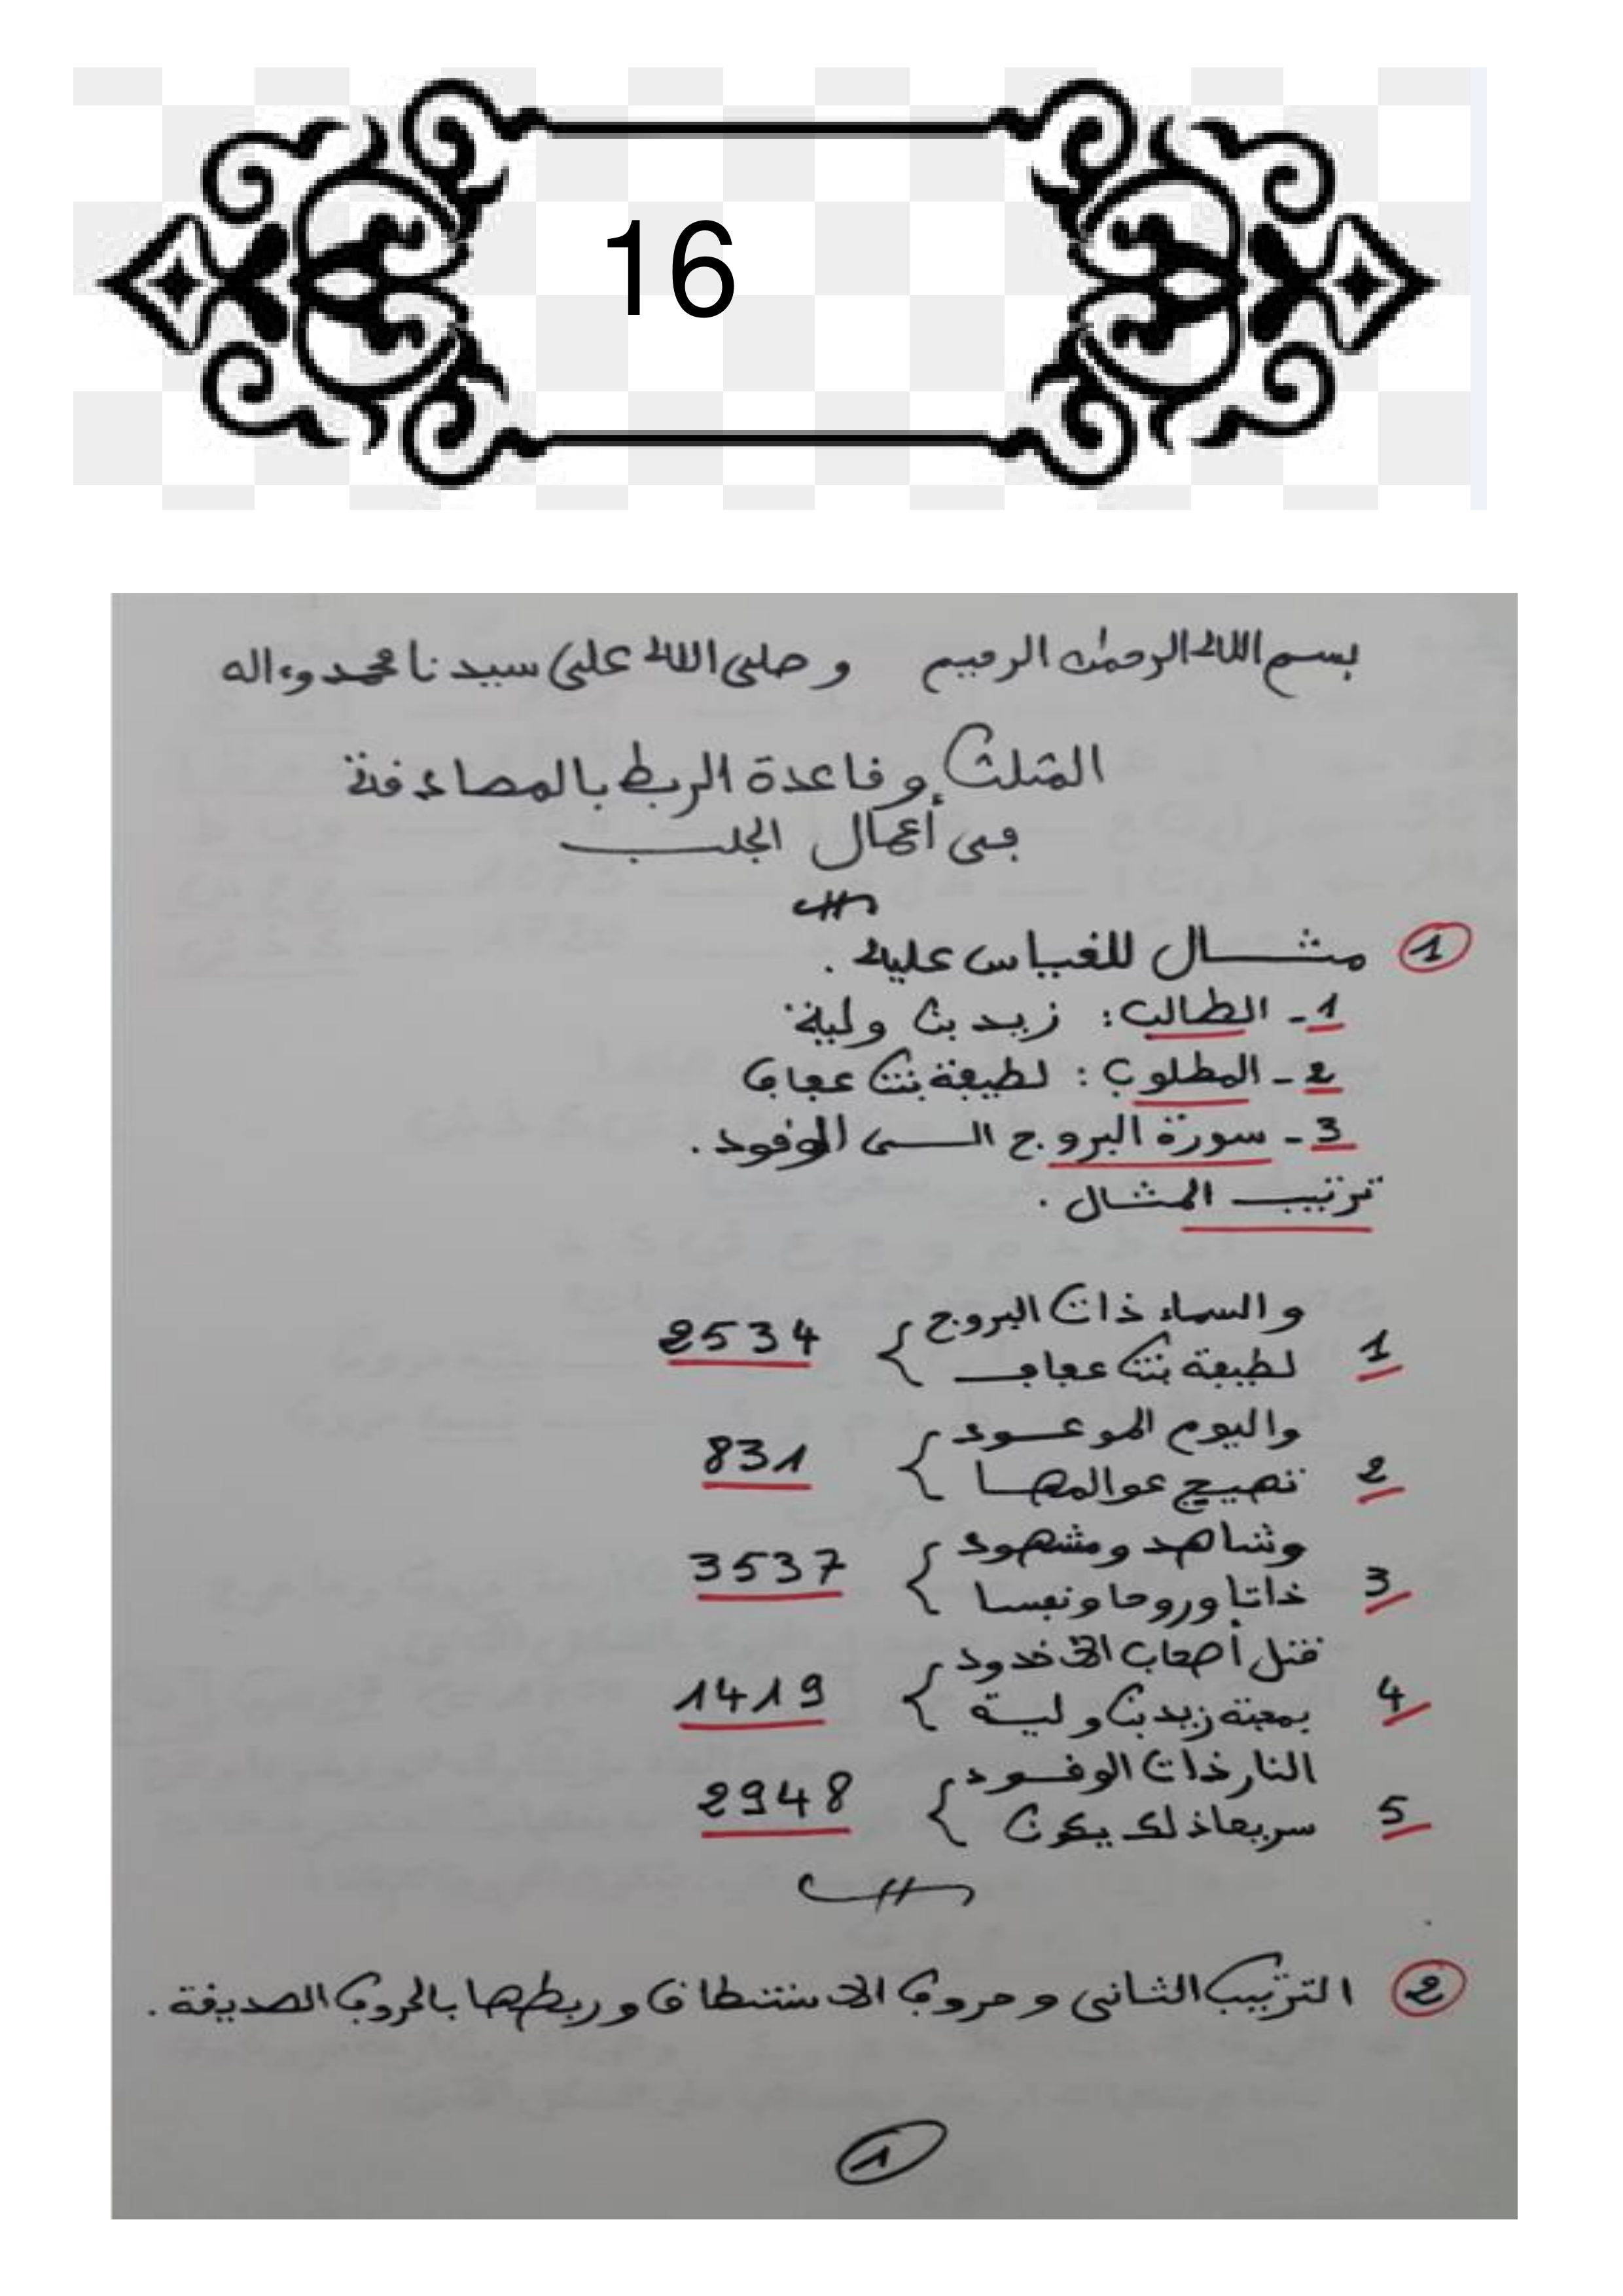 16
بسم الله الرحمن الرحيم وصلى الله على سيدنا محمد وءاله
المثلث وقاعدة الربط بالمصادقة
في أعمال الجلب
1 مثال للقياس عليه .
1 - الطالب : زيد بن ولية
2 - المطلوب : لطيفة بنت عفاف
3 - سورة البروج الى الوقود .
ترتيب المثال .
1 والسماء ذات البروج
لطيفة بنت عفاف } 2534
2 واليوم الموعود
تهييج عوالمها } 831
3 وشاهد ومشهود
ذاتا وروحا ونفسا } 3537
4 قتل أصحاب الاخدود
بمحبة زيد بن ولية } 1419
5 النار ذات الوقود
سريعا ذلك يكون } 2948
2 الترتيب الثاني وحروف الاستنطاق وربطها بالحروف الصديقة .
1